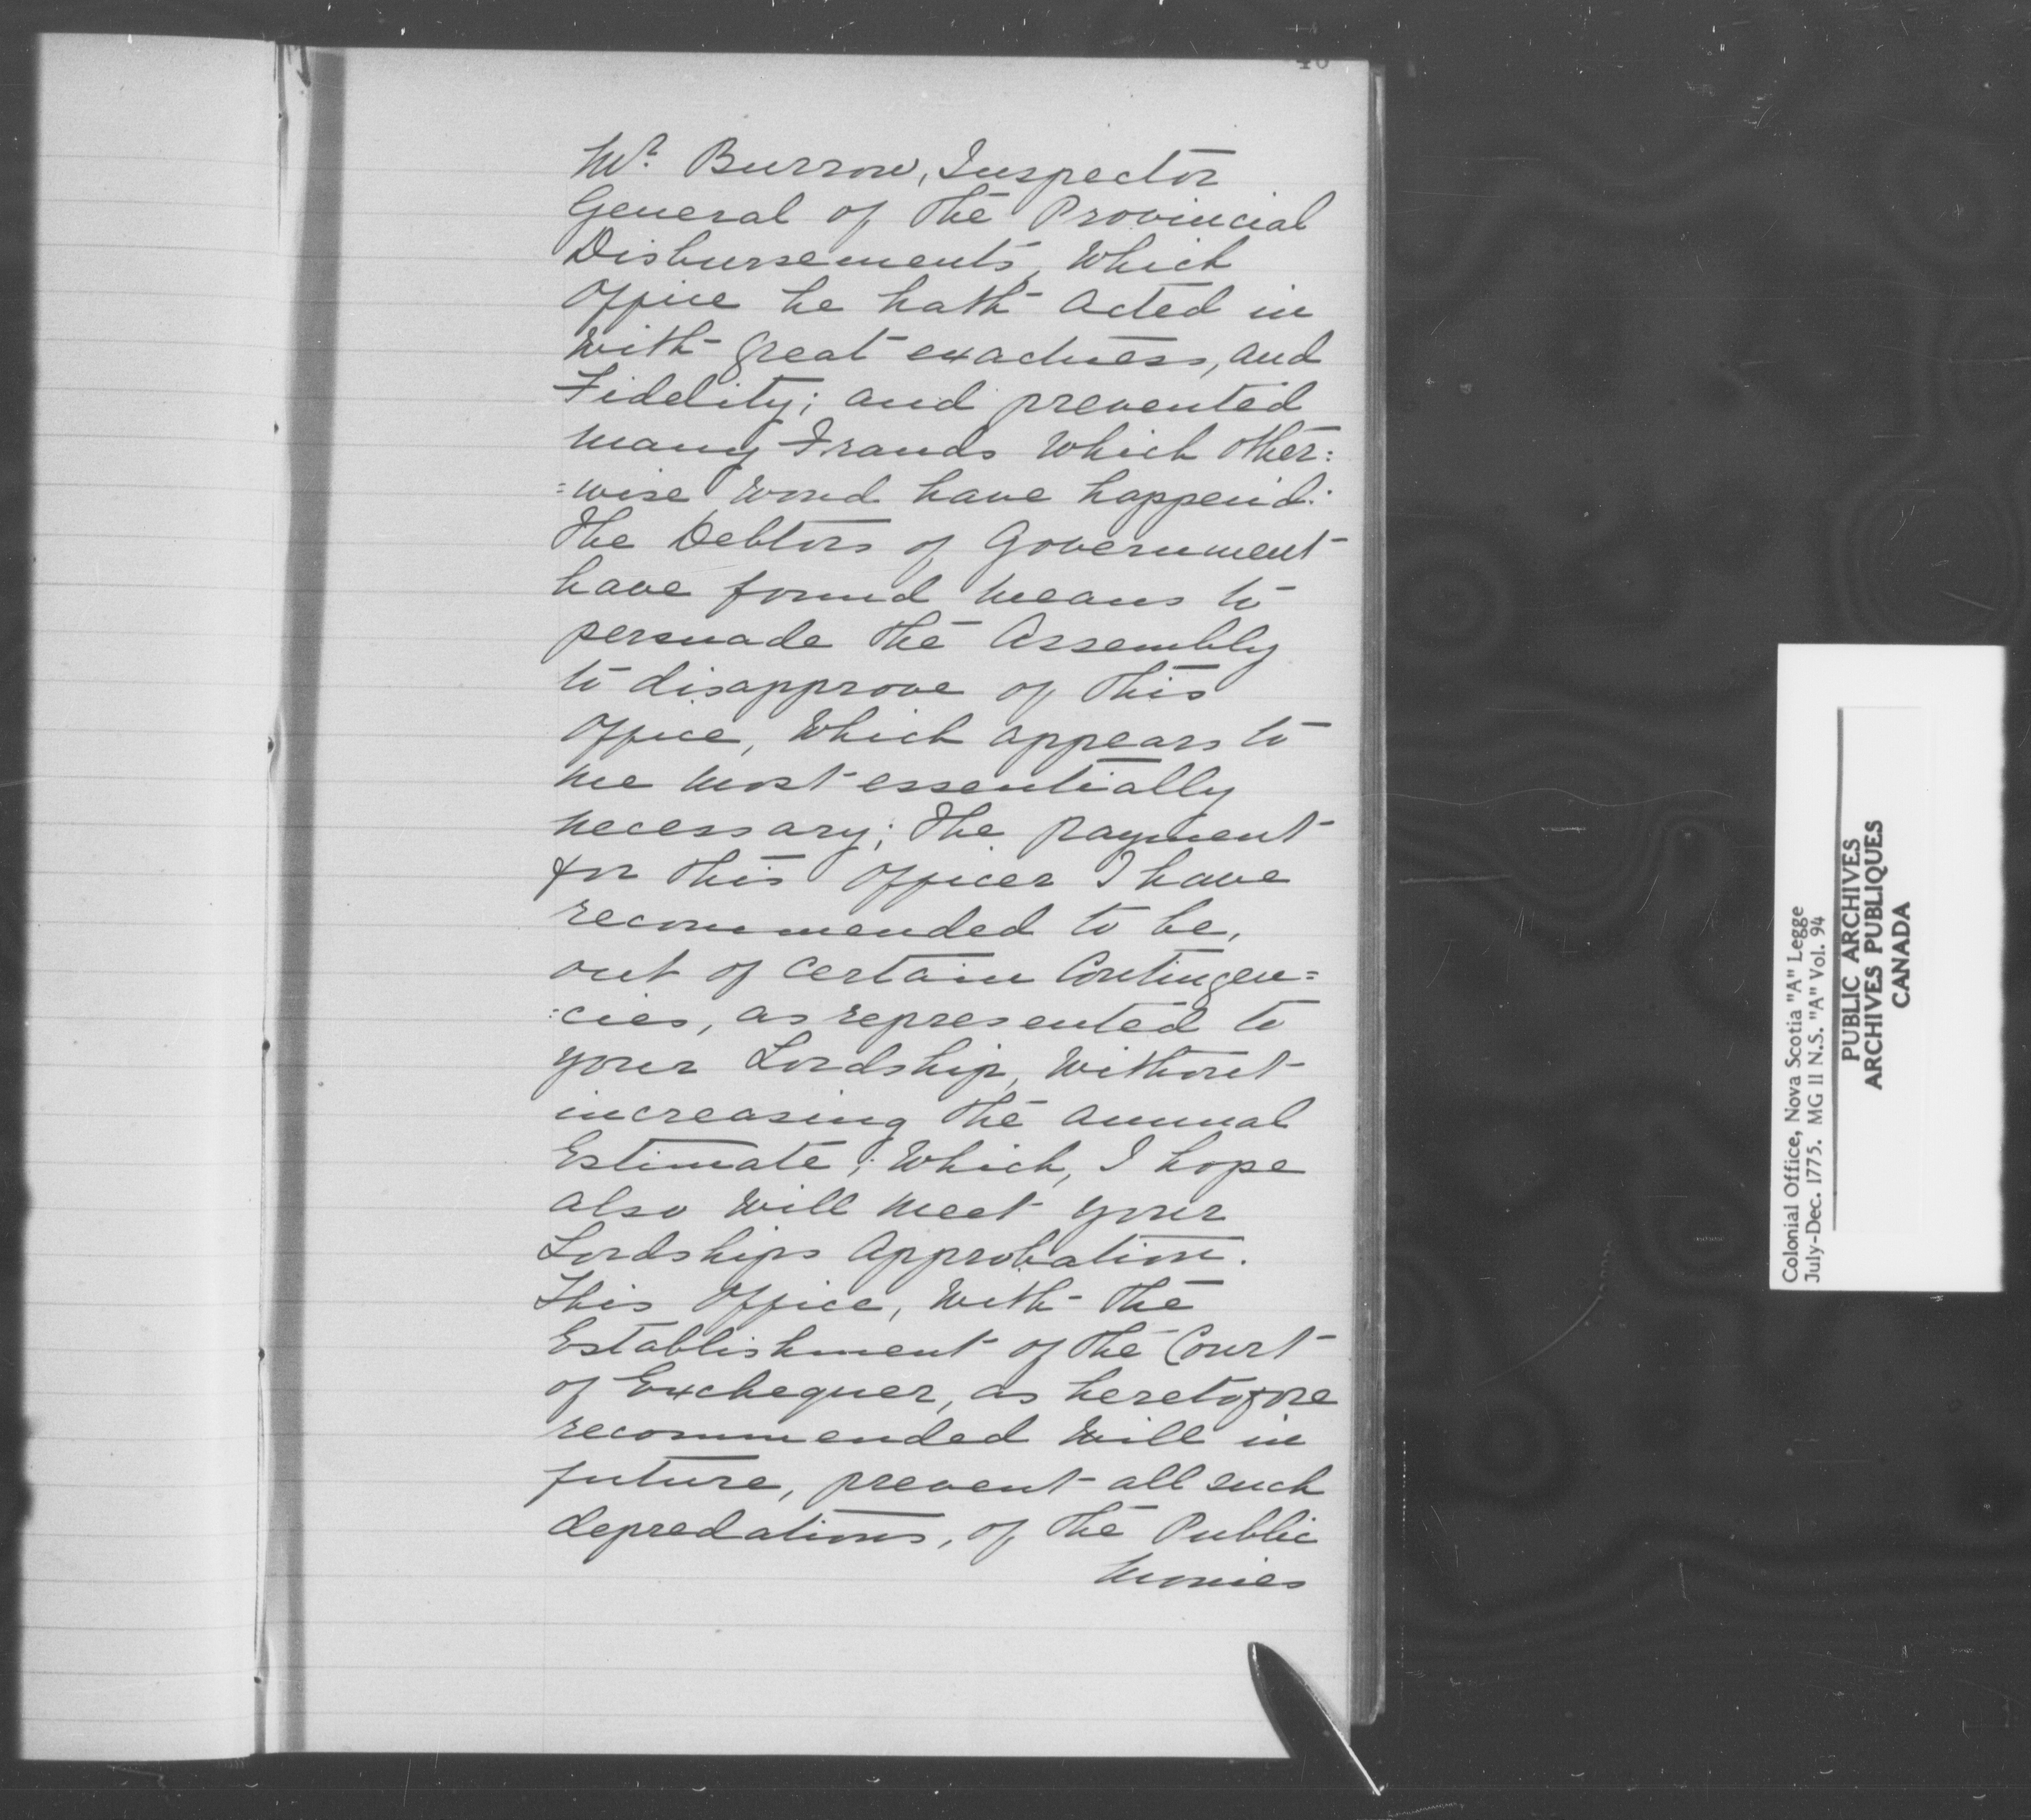 40
Mr. Burrow, Inspector
General of the Provincial
Disbursements, Which
Office he hath acted in
With great exactness, and
Fidelity; and prevented
many Frauds Which other=
=wise woud have happen'd:
The Debtors of Government
have found means to
persuade the Assembly
to disapprove of this
Office, Which appears to
me most essentially
necessary; the payment
for this Officer I have
recommended to be,
out of Certain Contingen=
=cies, as represented to
your Lordship, Without
increasing the annual
Estimate; Which, I hope
also Will meet your
Lordships Approbation.
This Office, With the
Establishment of the Court
of Exchequer, as heretofore
recommended Will in
future, prevent all such
depredations, of the Public
Monies
Colonial Office, Nova Scotia "A" Legge
July-Dec. 1775. MG 11 N.S. "A" Vol. 94
PUBLIC ARCHIVES
ARCHIVES PUBLIQUES
CANADA